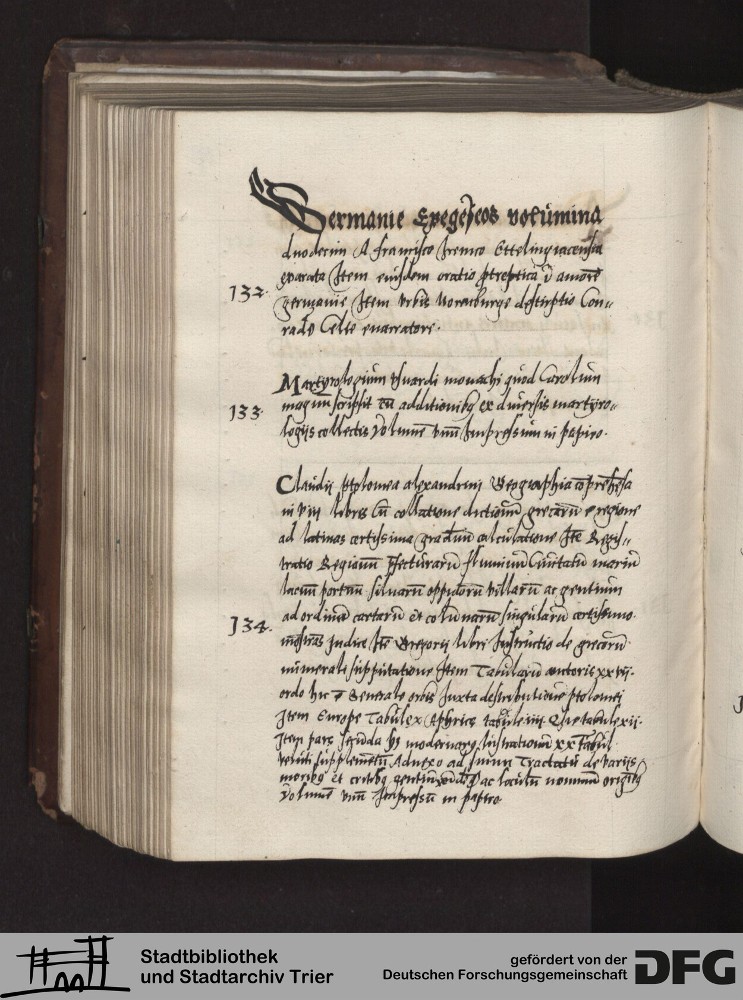 Germanie Exegeseos volumina
duodecim A francisco Irenico Ettelingiacensi
exarata Item eiusdem oratio ptreptica ī amorē
132.
germanie Item vrbis Norinburge descriptio Con„
rado Celte enarratore.
Martyrologium vsuardi monachi quod Carolum
133
magnum scripsit cū additionibꝫ ex diuersis martyro„
logijs collectis Volumē vnū Impressum in papiro.
Claudij ptolomei alexandrini Geographia cōprehēsa
in viij libris Cū collatione dictionū grecarū e regione
ad latinas certissima graduū calculatione Itē Regis„
tratio Regionū p̄fecturarū fluminū Ciuitatū mariū
lacuū portuū siluarū oppidorū villarū ac gentium
134.
ad ordinē cartarū et colūnarū singularū certissimo
indice Itē Gregorij libri Instructio de grecorū
numerali supputatione Item Tabularū autoris xxvij.
ordo hic ē Generale orbis Iuxta descriptionē ptolomei
Item Europe Tabule x Aphrice tabule iiij. Asie tabule xij.
Item pars secūda modernarꝫ lustrationū xx Tabul
veluti supplementū Adnexo ad finem Tractatu de varijs
moribꝫ et ritibꝫ gentiū ac locoru nominū
Volumē vnū Impressū in papiro
Stadtbibliothek
und Stadtarchiv Trier
gefördert von der
Deutschen Forschungsgemeinschaft
DFG